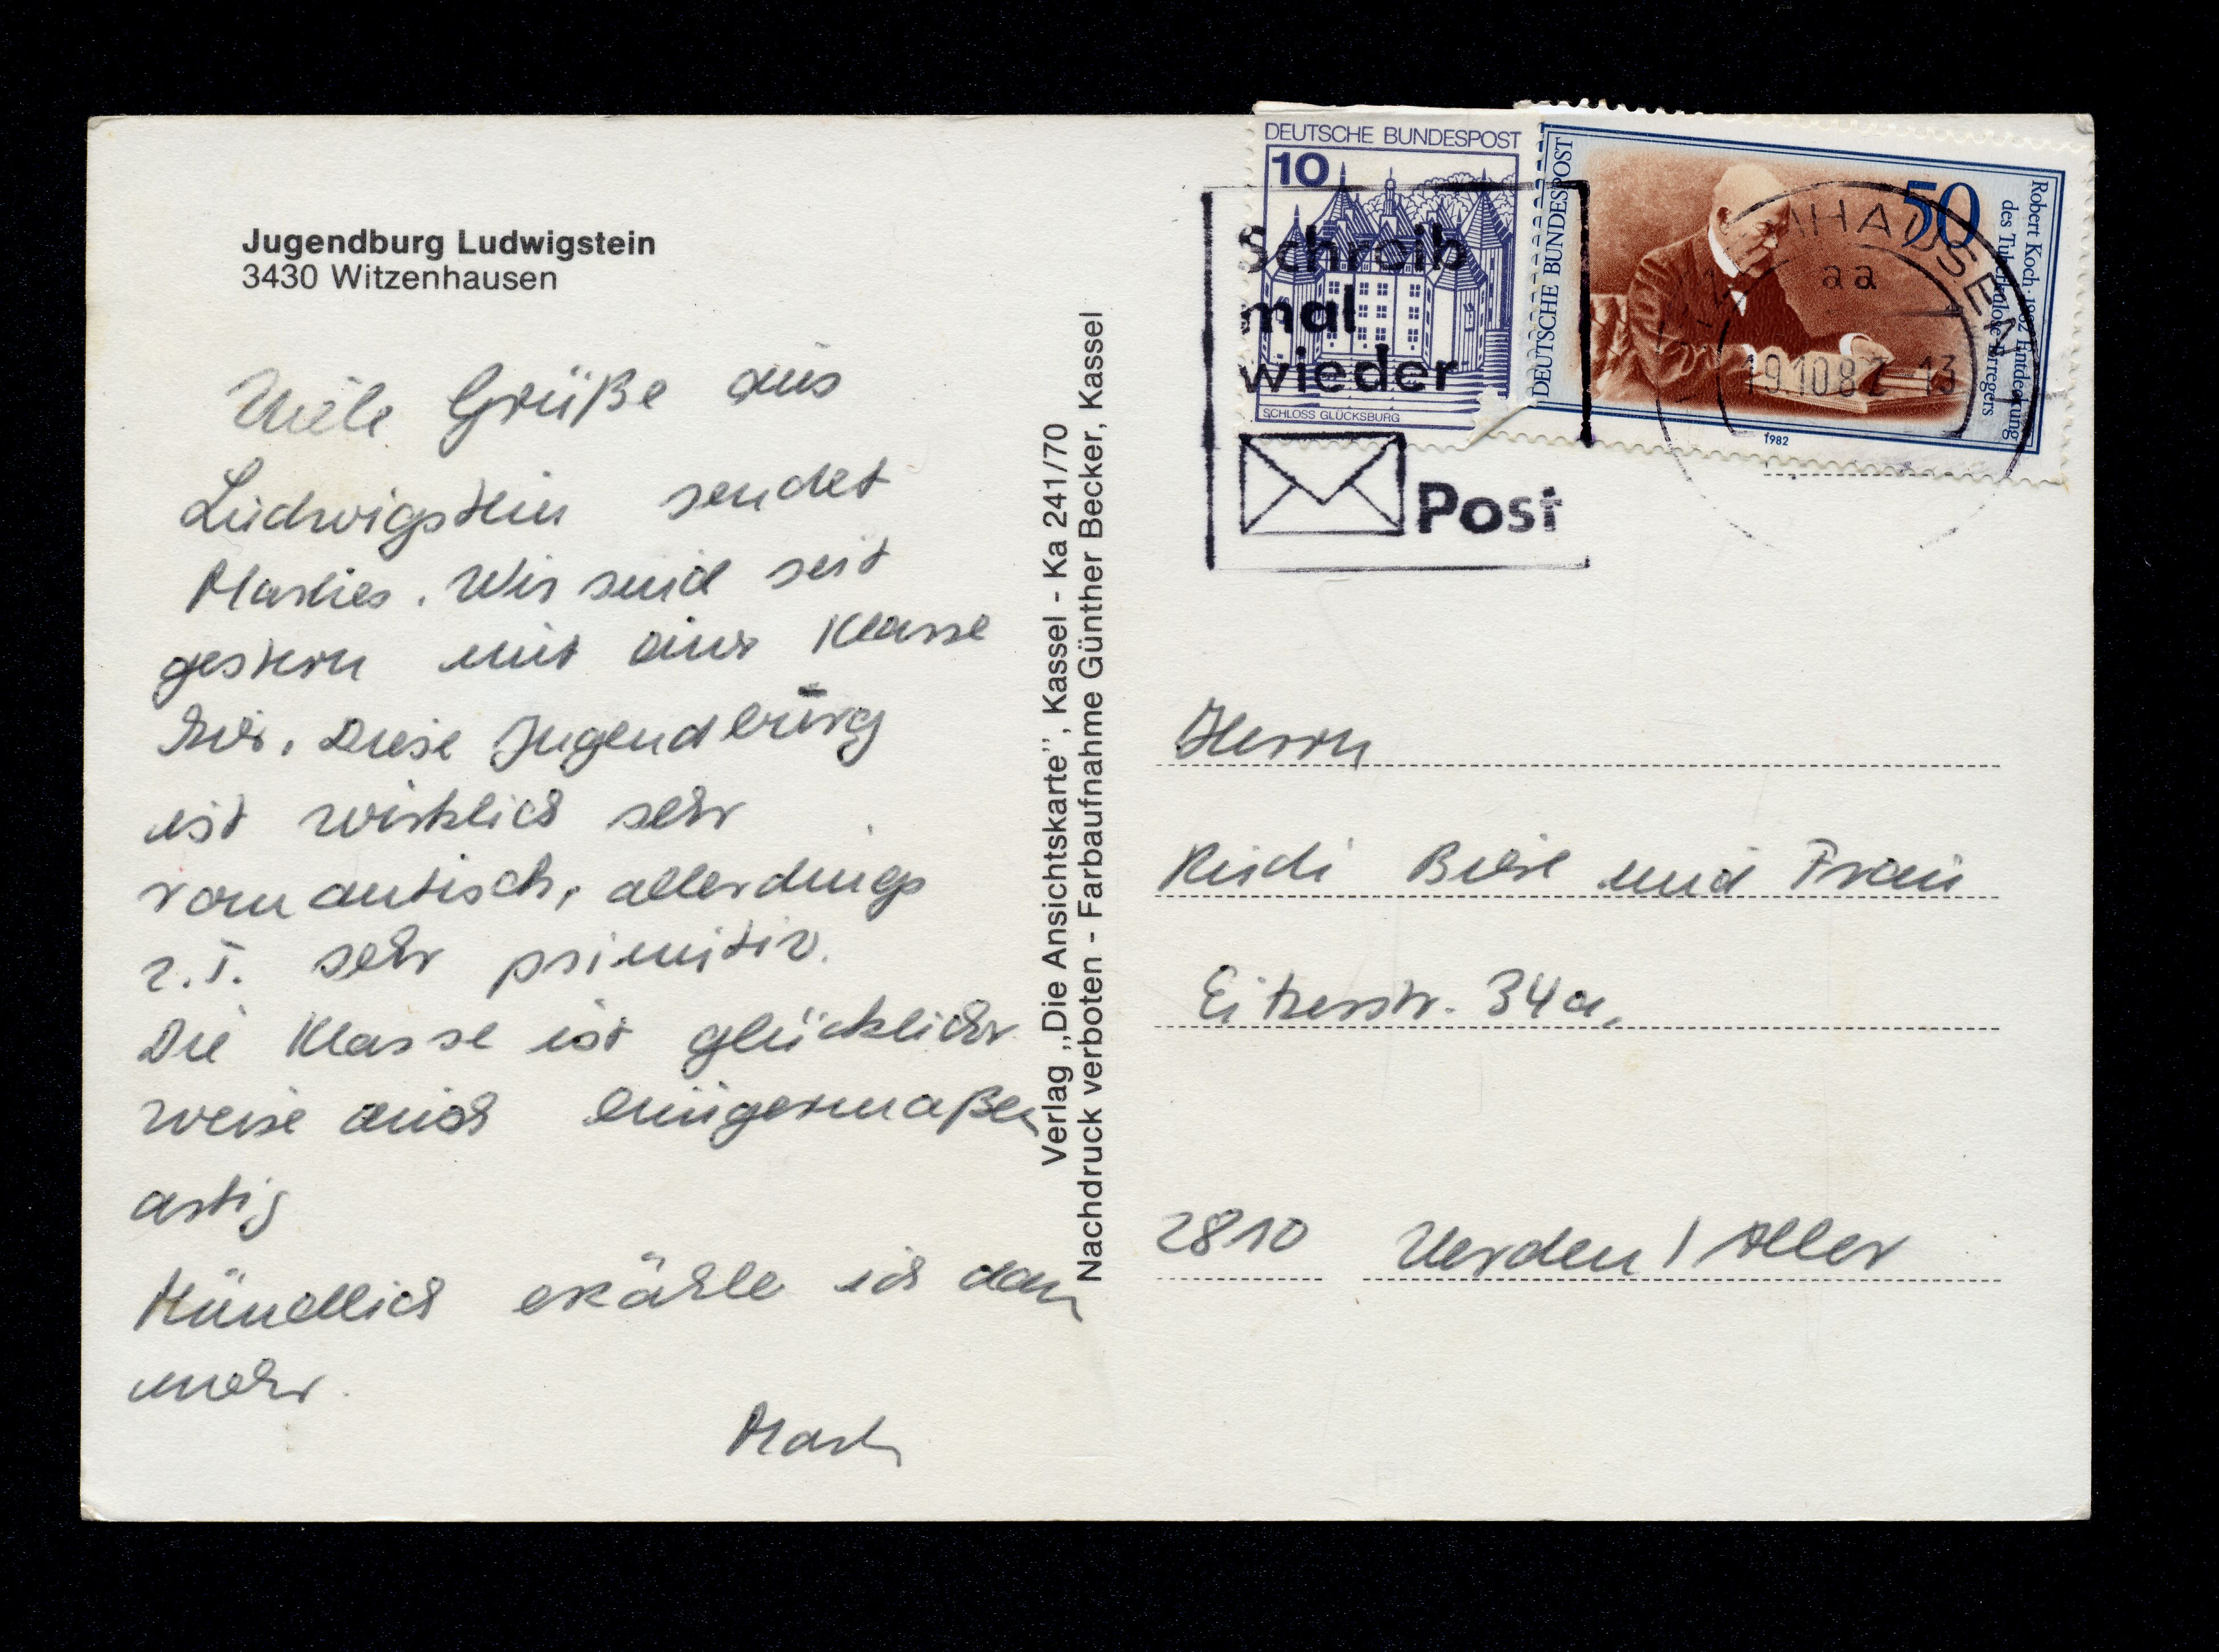 Jugendburg Ludwigstein
3430 Witzenhausen
Viele Grüße aus
Ludwigstein sendet
Marlies. Wir sind seit
gestern mit einer Klasse
hier. Diese Jugendburg
ist wirklich sehr
romantisch, allerdings
z.T. sehr primitiv.
Die Klasse ist glücklicher
weise auch einigermaßen
artig
Mündlich erzähle ich dann
mehr.
Verlag „Die Ansichtskarte”, Kassel - Ka 241/70
Nachdruck verboten - Farbaufnahme Günther Becker, Kassel
DEUTSCHE BUNDESPOST
10
SCHLOSS GLÜCKSBURG
DEUTSCHE BUNDESPOST
50
Robert Koch · 1882 Entdeckung
des Tuberkulose-Erregers
1982
Schreib
mal
wieder
Post
NHAUSEN
aa
19.10.82-13
Herrn
Rudi und Frau
Eitzerstr. 34a,
2810 Verden / Aller